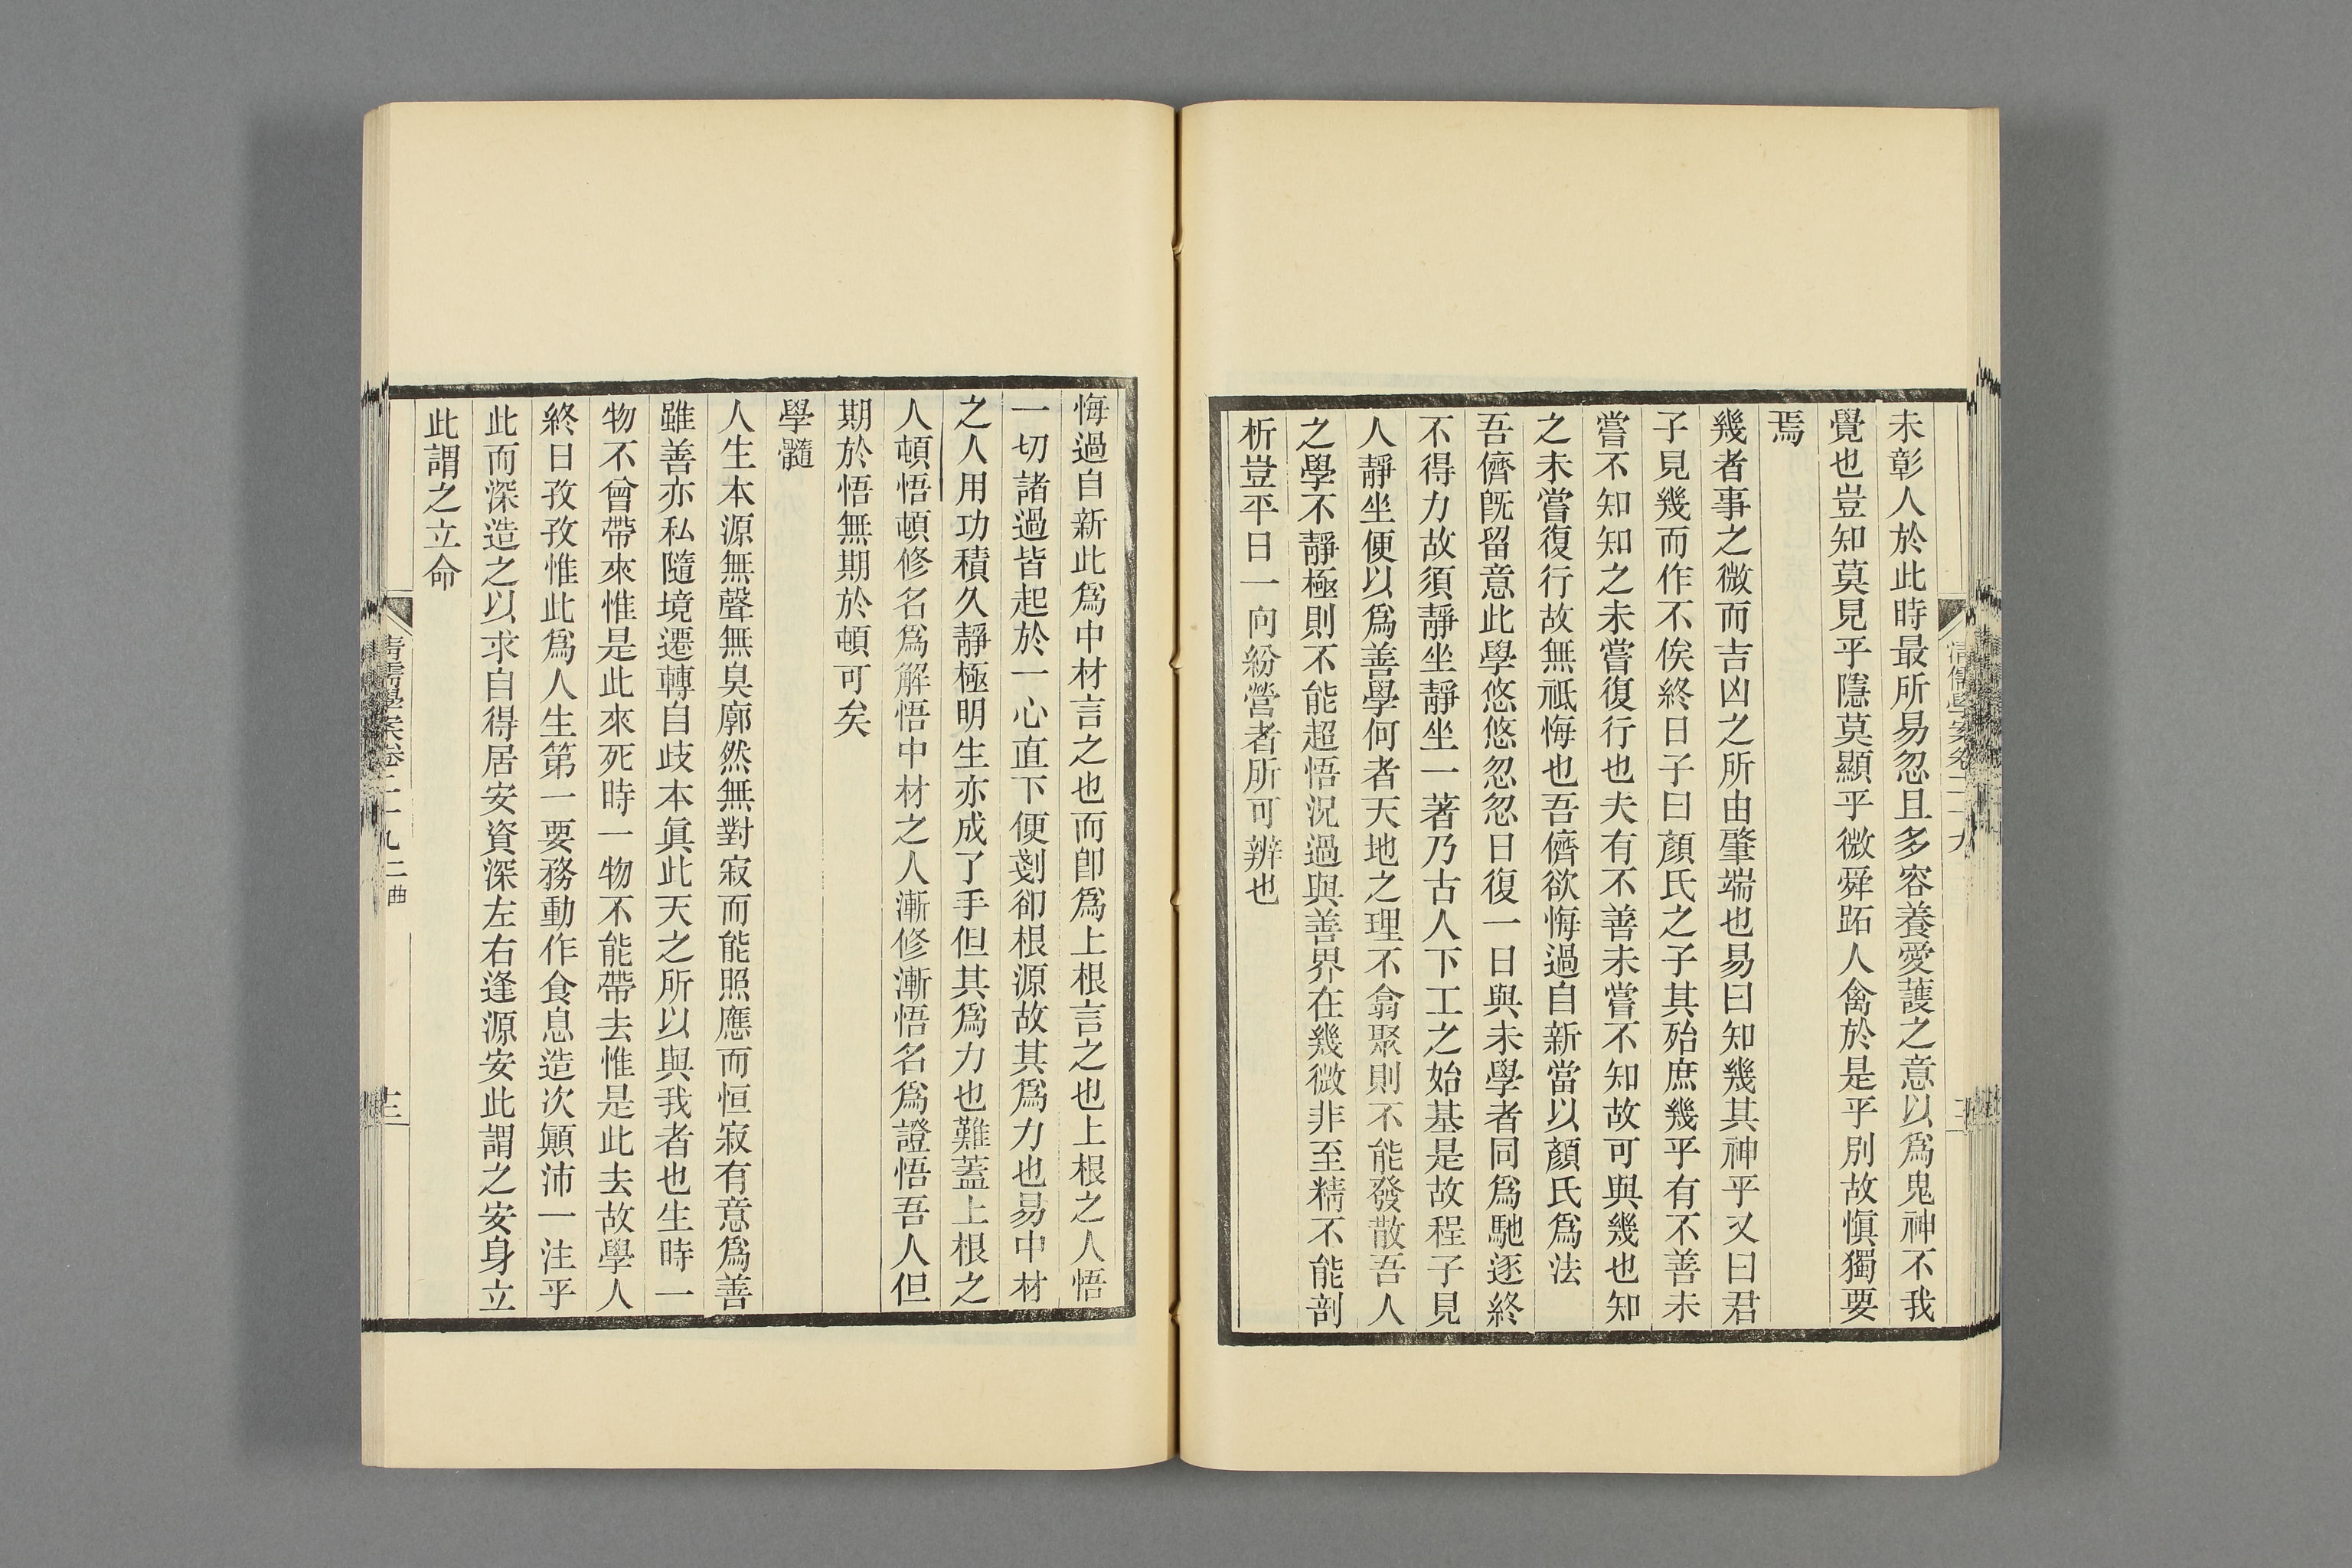 未彰人於此時最所易忽且多容養愛護之意以爲鬼神不我
覺也豈知莫見乎隱莫顯乎微舜跖人禽於是乎別故愼獨要
焉
幾者事之微而吉凶之所由肇端也易曰知幾其神乎又曰君
子見幾而作不俟終日子曰顏氏之子其殆庶幾乎有不善未
嘗不知知之未嘗復行也夫有不善未嘗不知故可與幾也知
之未嘗復行故無祗悔也吾儕欲悔過自新當以顏氏爲法
吾儕旣留意此學悠悠忽忽日復一日與未學者同爲馳逐終
不得力故須靜坐靜坐一著乃古人下工之始基是故程子見
人靜坐便以爲善學何者天地之理不翕聚則不能發散吾人
之學不靜極則不能超悟況過與善界在幾微非至精不能剖
析豈平日一向紛營者所可辨也
悔過自新此爲中材言之也而卽爲上根言之也上根之人悟
一切諸過皆起於一心直下便剗卻根源故其爲力也易中材
之人用功積久靜極明生亦成了手但其爲力也難蓋上根之
人頓悟頓修名爲解悟中材之人漸修漸悟名爲證悟吾人但
期於悟無期於頓可矣
學髓
人生本源無聲無臭廓然無對寂而能照應而恒寂有意爲善
雖善亦私隨境遷轉自歧本眞此天之所以與我者也生時一
物不曾帶來惟是此來死時一物不能帶去惟是此去故學人
終日孜孜惟此爲人生第一要務動作食息造次顚沛一注乎
此而深造之以求自得居安資深左右逢源安此謂之安身立
此謂之立命
清儒學案卷二十九 二曲